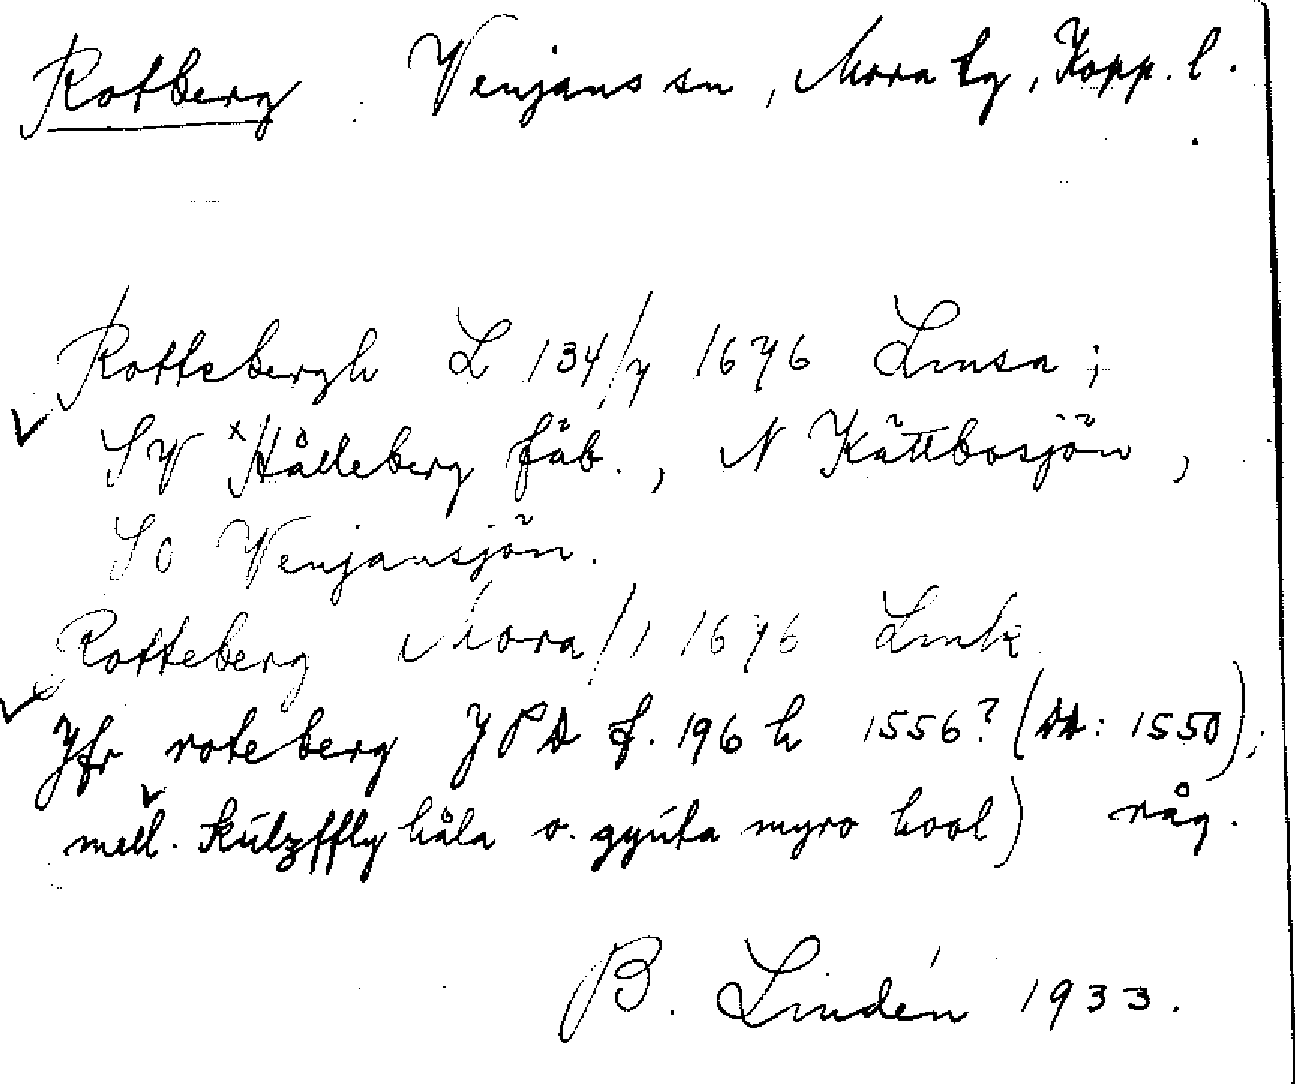 Rotberg Venjans sn, Mora tg, Kopp. l.
Rottebergh L 134/7 1676 Lmsa;
SV x Hålleberg fäb., N Kättbosjön,
SO Venjansjön.
Rotteberg Mora/1 1676 Lmk
Jfr roteberg JPA f. 196 h 1556? (DA: 1550);
mell. håla o. gyuta myro hool) råg.
B. Lindén 1933.